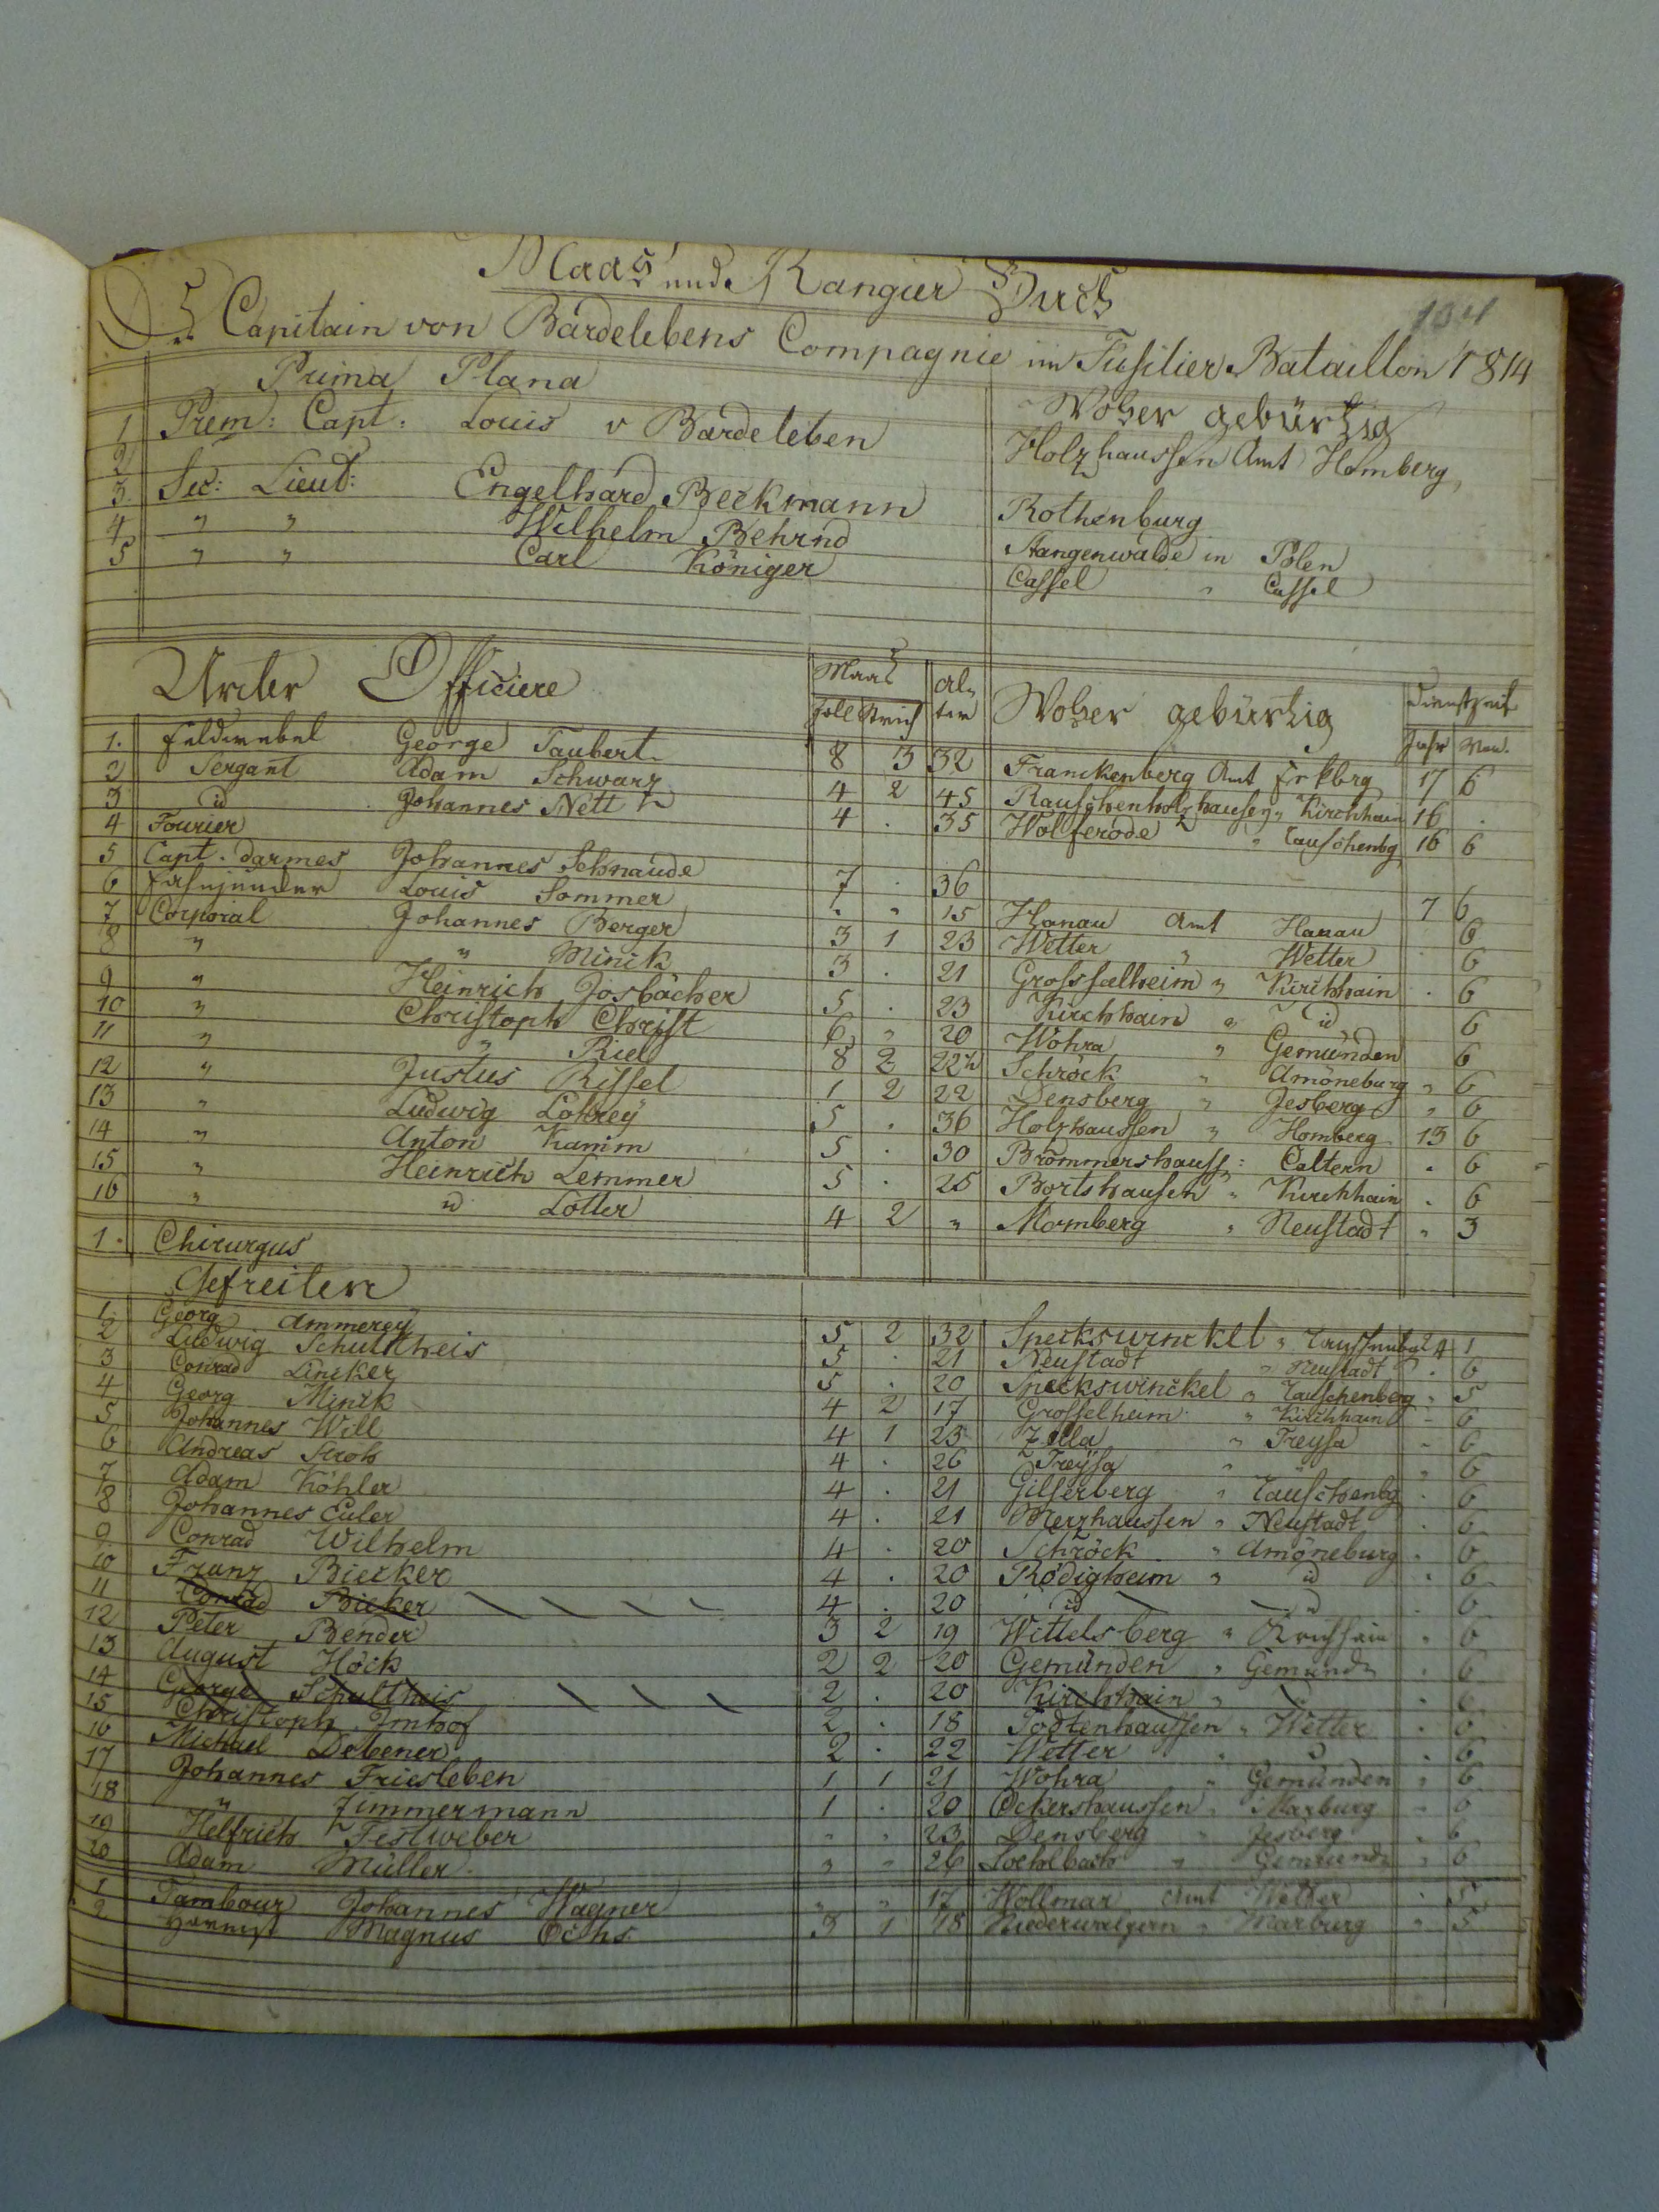 Maas und Rangier Buch
134
Capitain von Bardelebens Compagnie im Fusilier Bataillon 1814
Prima Plana Woher gebürtig
1 Prem: Capt: Louis v Bardeleben Holzhaussen Amt Homberg
2
3. Sec: Lieut: Engelhard Beckmann Rothenburg
4 " " Wilhelm Behrnd Stangenwalde in Polen
5 " " Carl Königer Cassel " Cassel
Unter Officiere Maas Alter Woher gebürtig Dienstzeit
Zoll Strich Jahr Mon.
1. Feldwebel George Taubert 8 3 32 Franckenberg Amt Frkbrg 17 6
2 Sergant Adam Schwarz 4 2 45 Rauschenholzhausen " Kirchhain 16 .
3 id Johannes Nett 4 . 35 Wolferode " Rauschenbg 16 6
4 Fourier
5 Capt. darmes Johannes Schnaude 7 . 36 7 6
6 Louis Sommer . " 15 Hanau Amt Hanau 6
7 Corporal Johannes Berger 3 1 23 Wetter " Wetter . 6
8 " " Minck 3 . 21 Grosseelheim " Kirchhain . 6
9 " Heinrich Josbächer 5 . 23 Kirchhain " id 6
10 " Christoph Christ 6 " 20 Wohra " Gemünden 6
11 " " Riel 8 2 22½ Schröck " Amöneburg " 6
12 " Justus Rissel 1 2 22 Densberg " Jesberg " 6
13 " Ludwig Lohrey 5 . 36 Holzhaussen " Homberg 13 6
14 " Anton Kamm 5 . 30 Brommershauss: Caltern . 6
15 " Heinrich Lemmer 5 . 25 Bortshausen " Kirchhain . 6
16 " id Lotter 4 2 " Momberg " Neustadt " 3
1. Chirurgus
Gefreiten
1. Georg Ammerey 5 2 32 Speckswinckel " 1
2 Ludwig Schultheis 5 . 21 Neustadt " Neustadt . 6
3 Conrad Lincker 5 . 20 Speckswinckel " Rauschenberg " 5
4 Georg Minck 4 2 17 Grosselheim " Kirchhain - 6
5 Johannes Will 4 1 23 Zella " Treysa " 6
6 Andreas Stroh 4 . 26 Treysa " " 6
7 Adam Köhler 4 . 21 Gilserberg " Rauschenbg . 6
8 Johannes Euler 4 . 21 Merzhaussen " Neustadt . 6
9 Conrad Wilhelm 4 . 20 Schröck " Amöneburg . 6
10 Franz Biecker 4 . 20 Rödigheim " id . 6
11 Conrad Bieker 4 . 20 id id . 6
12 Peter Bender 3 2 19 Wittelsberg " Kirchhain " 6
13 August Höck 2 2 20 Gemünden " Gemünd . 6
14 George Schultheis 2 . 20 Kirchhain " . 6
15 Christoph Imhof 2 . 18 Todtenhaussen " Wetter . 6
16 Michael Debener 2 . 22 Wetter " . 6
17 Johannes Friesleben 1 1 21 Wohra " Gemünden " 6
18 " Zimmermann 1 . 20 Ockershaussen " Marburg " 6
19 Helfrich Festweber " " 23 Densberg " Jesberg . 6
20 Adam Müller " " 26 Loehlbach " Gemünd " 6
1 Tambour Johannes Wagner " " 17 Wollmar Amt Wetter . 5
2 Hornist Magnus Ochs 3 1 18 Niederwalgern " Marburg " 5